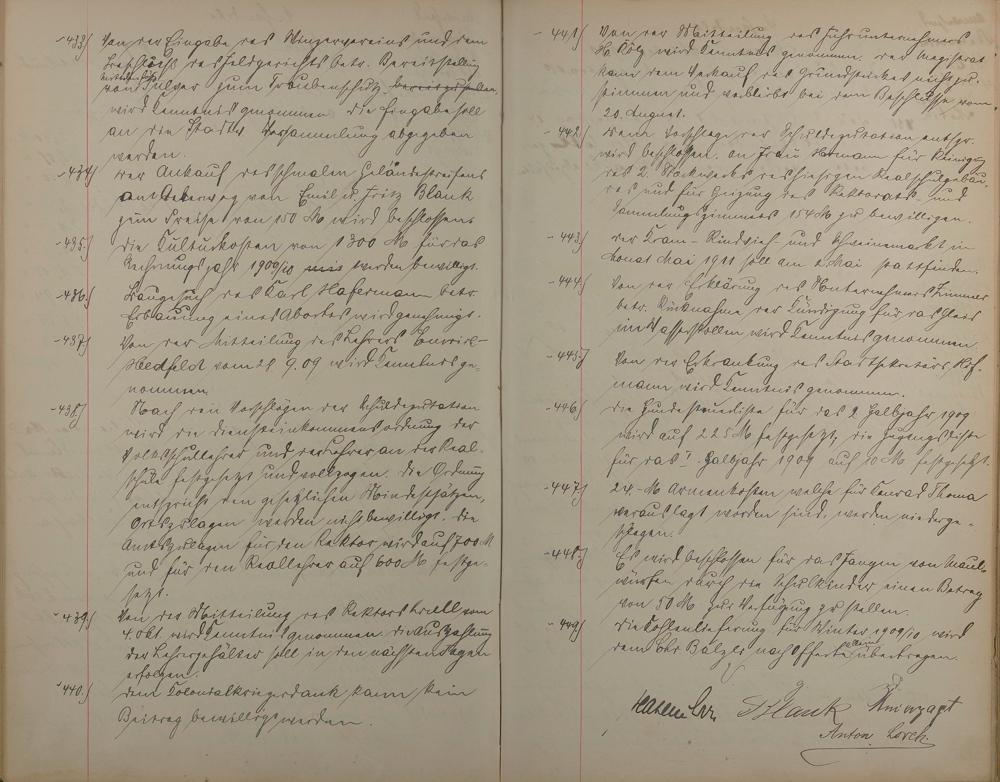 -433.) Von der Eingabe des Winzervereins und dem
Beschluss des Feldgerichts betr. Bereitstellung
von Pulver zum Traubenschutz bereitzustellen,
wird Kenntnis genommen. Die Eingabe soll
an die Stadtv. Versammlung abgegeben
werden.
-434.) Der Ankauf des schmalen Geländestreifens
am von Emil u. Fritz Blank
zum Preise von 150 M wird beschlossen.
-435.) Die Kulturkosten von 1300 M für das
Rechnungsjahr 1909/10 werden bewilligt.
-436.) Baugesuch des Karl Hafermann betr.
Erbauung eines Abortes wird genehmigt.
-437.) Von der Mitteilung des Lehrers
Hedfeldt vom 28 9. 09 wird Kenntnis ge-
nommen.
-438.) Nach den Vorschlägen der Schuldeputation
wird die Diensteinkommensordnung der
Volksschullehrer und der Lehrer an der Real-
schule festgesetzt und vollzogen. Die Ordnung
entspricht den gesetzlichen Mindestsätzen,
Ortszulagen werden nicht bewilligt. Die
Amtszulagen für den Rektor wird auf 700 M
und für den Reallehrer auf 600 M festge-
setzt.
-439.) Von der Mitteilung des Rektors vom
4 Okt wird Kenntnis genommen die Auszahlung
der Lehrergehälter soll in den nächsten Tagen
erfolgen.
-440.) Dem Kolonialkriegerdank kann kein
Beitrag bewilligt werden.
-441.) Von der Mitteilung des Fuhrunternehmers
wird Kenntnis genommen. Der Magistrat
kann dem Verkauf des Grundstückes nicht zu-
stimmen und verbleibt bei dem Beschlusse vom
20. August.
-442.) Dem Vorschlage der Schuldeputation entspr.
wird beschlossen, an Frau Hofmann für Reinigung
des 2. Stockwerks des hiesigen Realschulgebäu-
des und für Heizung des Rektorats- und
Sammlungszimmers 154 M zu bewilligen.
-443.) Der Kram- Rindvieh- und Schweinemarkt im
Monat Mai 1911 soll am 2. Mai stattfinden.
-444.) Von der Erklärung des Unternehmers Zimmer
betr. Rücknahme der Kündigung für das Gleis
im Wasserstollen wird Kenntnis genommen.
-445.) Von der Erkrankung des Stadtsekretärs Hof-
mann wird Kenntnis genommen.
-446.) Die Hundesteuerliste für das 2. Halbjahr 1909
wird auf 225 M festgesetzt, die Zugangsliste
für das I. Halbjahr 1909 auf 10 M festgesetzt.
-447.) 24.- M Armenkosten welche für Konrad Thoma
verauslagt worden sind, werden niederge-
schlagen.
-448.) Es wird beschlossen für das Fangen von Maul-
würfen durch die Schulkinder einen Betrag
von 50 M zur Verfügung zu stellen.
-449.) Die Kohlenlieferung für Winter 1909/10 wird
dem Chr Bälzer nach Offerte übertragen.
Blank
Anton Lorch.